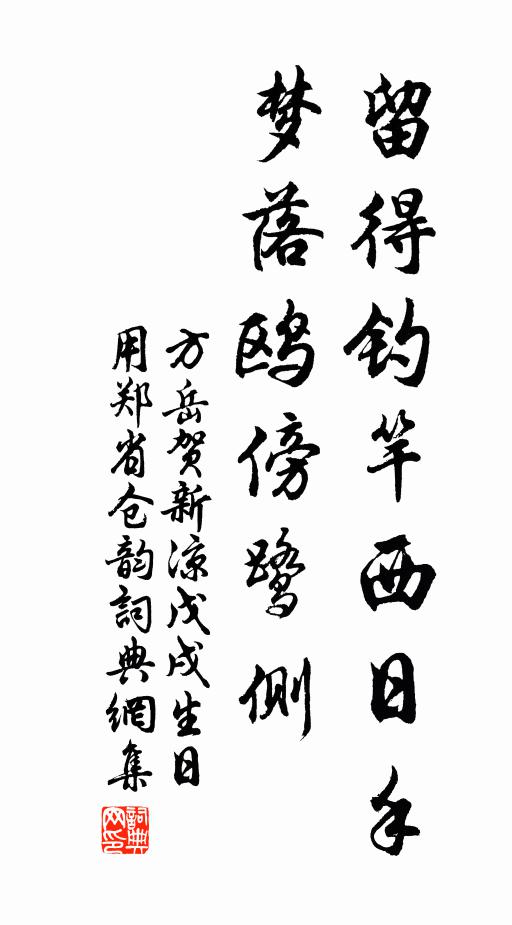 留得钓竿西日手
梦落鸥傍鹭侧
方岳贺新凉戊戌生日
用郑省仓韵詞典網集
詞典
网印